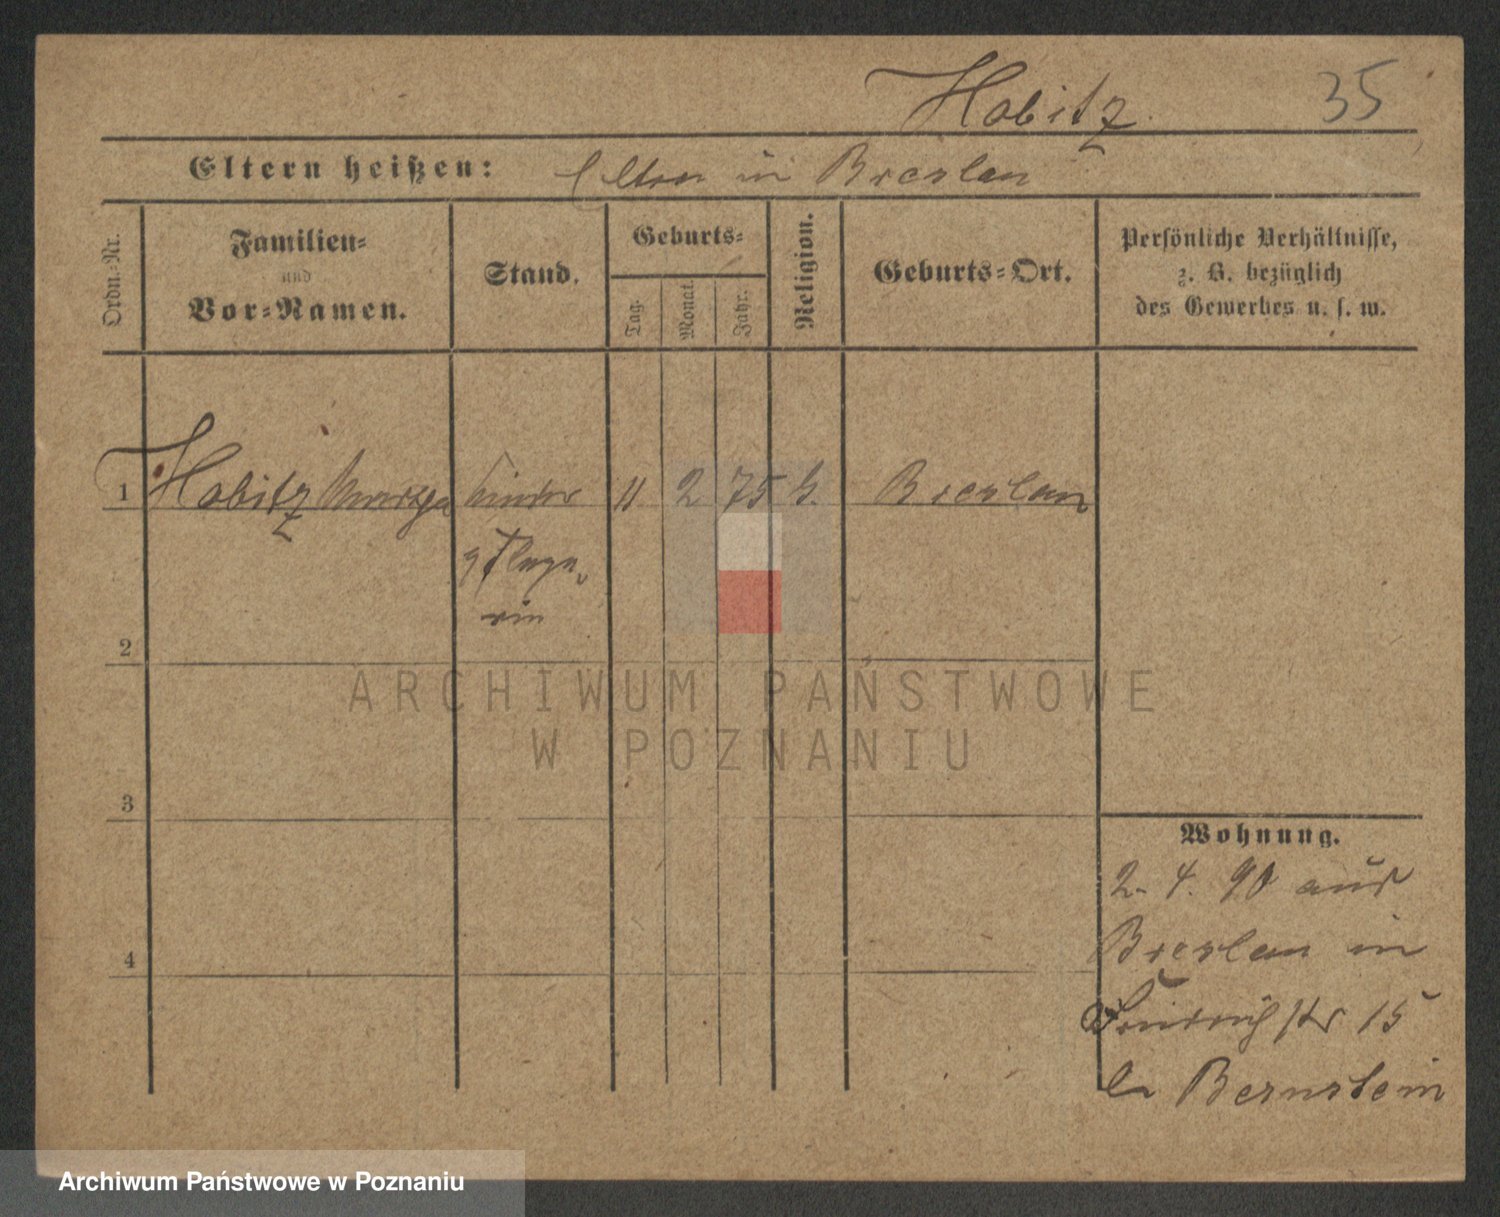 Habitz
35
Eltern heißen: Eltern in Breslau
Ordn.-Nr.
Familien-
und
Vor-Namen.
Stand.
Geburts-
Tag.
Monat.
Jahr.
Religion.
Geburts-Ort.
Persönliche Verhältnisse,
z. B. bezüglich
des Gewerbes u. s. w.
1 Habitz Kinder 11 2 75 Breslau
rin
2
3
4
Wohnung.
2. 4. 90 aus
Breslau in
Friedrichstr 15
Bernstein
ARCHIWUM PAŃSTWOWE
W POZNANIU
Archiwum Państwowe w Poznaniu